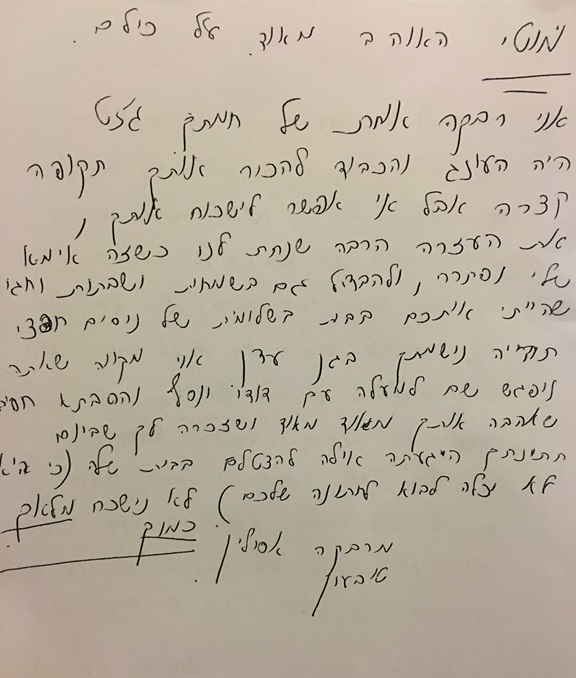 מוטי האוהב מאוד על כולם.
אני רבקה אחת של חמתך ג'נט
היה העונג והכבוד להכור אותך תקופה
קצרה אבל אי אפשר לישכוח אותך ,
את העזרה הרבה שנתת לנו כשזה אימא
שלי נפטרה, ולהבדיל גם בשמחות ושבתות וחגי
שהייתי איתכם בבת בשלומית של ניסים חפצי
תהייה נישמתך בגן עדן אני מקווה שאתה
ניפגש שם למעלה עם דודו יוסף והסבתא
שאהבה אותך מאוד מאוד ושזכרה לך שבינם
חתונתך היגעתה אילה להצטלם בבית שלה (כי היא
לא יכלה לבוא לחתונה שלכם) לא נישכח מלאך
כמוך
מרבקה אסולין.
טיבעון